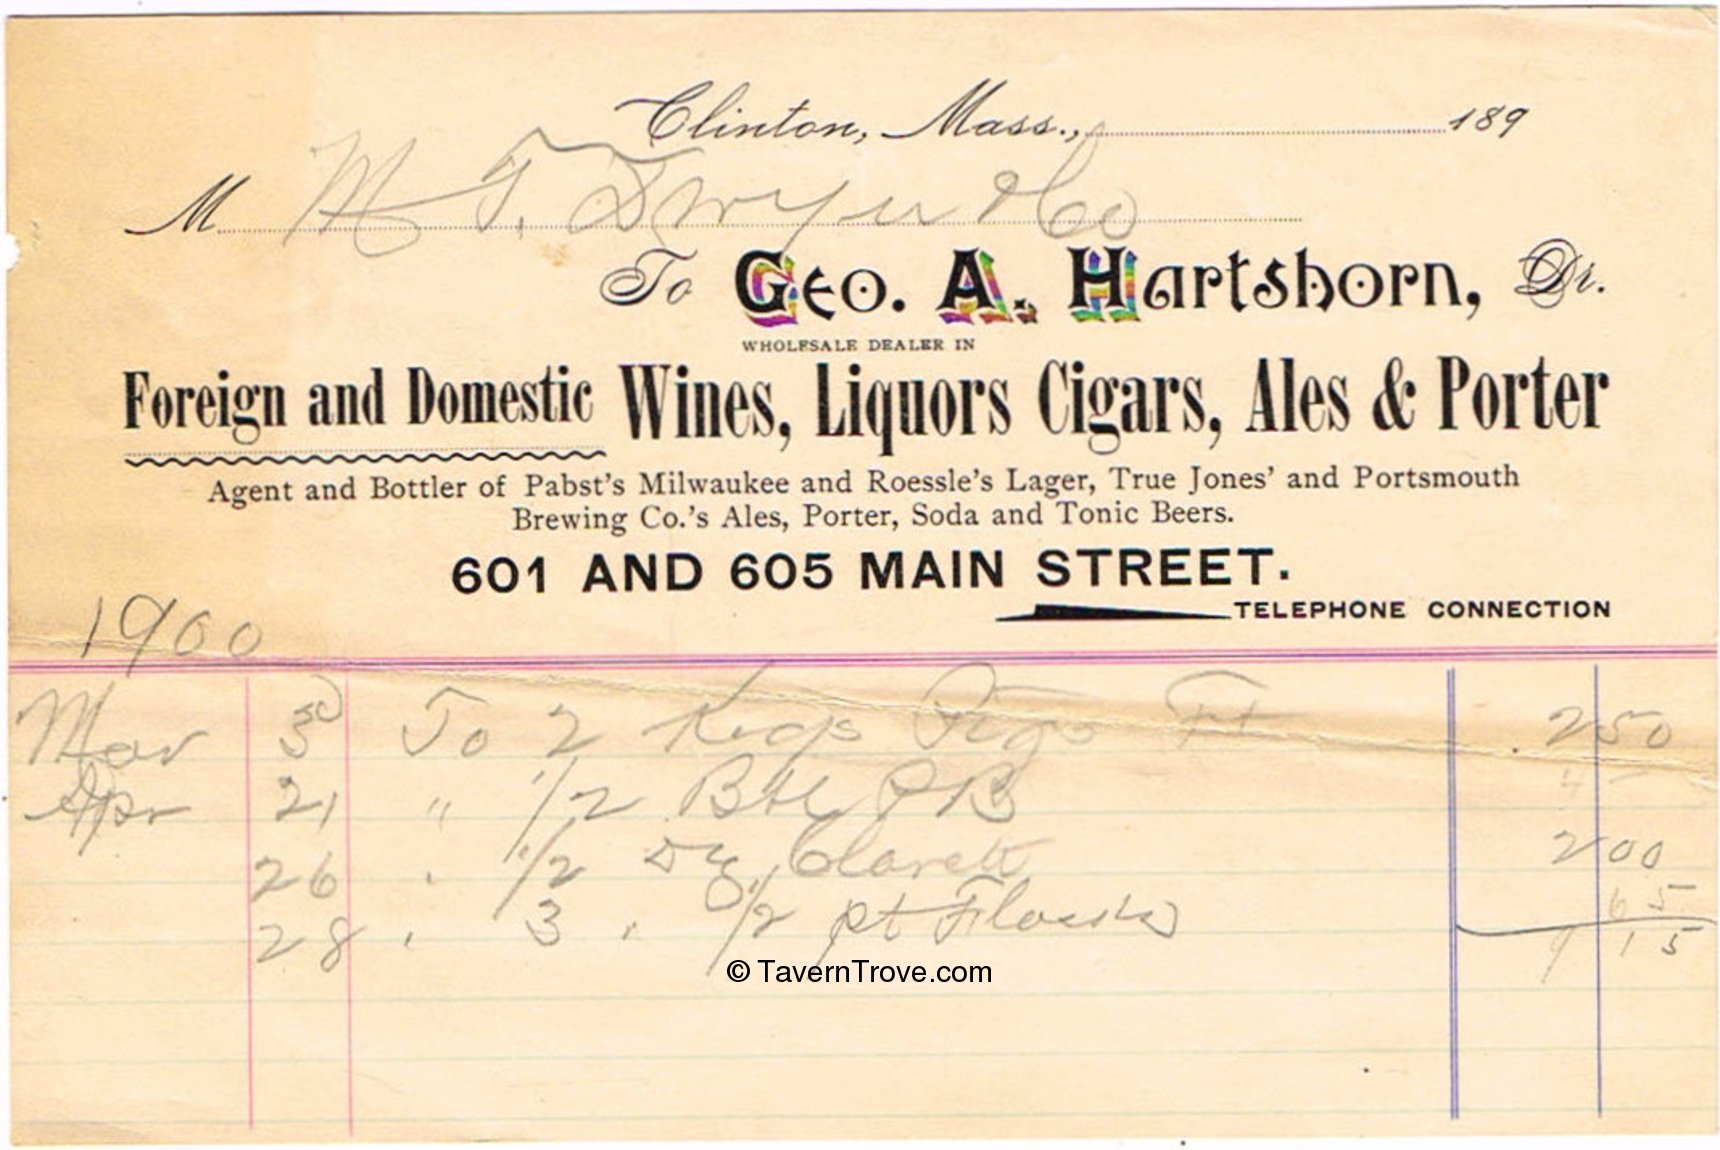 Clinton, Mass., 189
M M T. Dwyer & Co
To Geo. A. Hartshorn, Dr.
WHOLESALE DEALER IN
Foreign and Domestic Wines, Liquors Cigars, Ales & Porter
Agent and Bottler of Pabst's Milwaukee and Roessle's Lager, True Jones' and Portsmouth
Brewing Co.'s Ales, Porter, Soda and Tonic Beers.
601 AND 605 MAIN STREET.
TELEPHONE CONNECTION
1900
Mar 3 To 2 Kegs Pigs Ft 2 50
Apr 21 " 1/2 Bbl P B 4 -
26 " 1/2 Dz Claret 2 00
28 " 3 " 1/2 pt Flasks 65
9 15
© TavernTrove.com